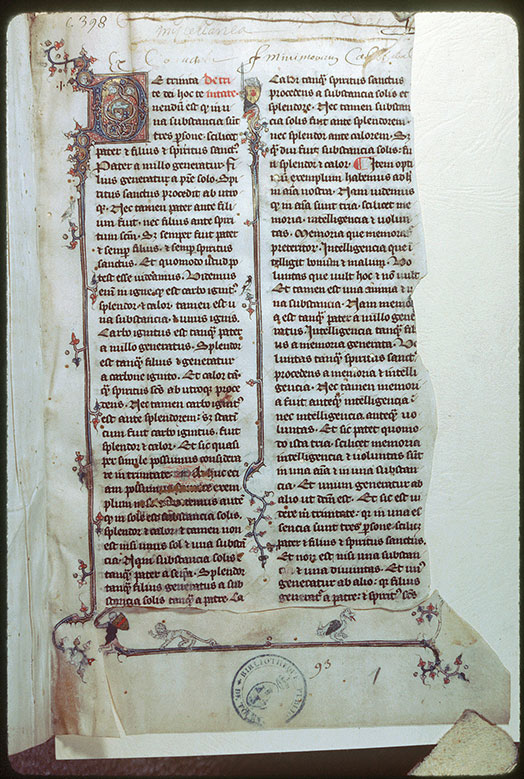 c. 398
miscellanea
De trinita De tri
te est hoc te intate.
nendū est qꝫ in u
na substancia sūt
tres psone. scilicet
pater & filius & spiritus sanctꝰ.
Pater a nullo generatur. fi
lius generatur a pře solo. Spi
ritus sanctus procedit ab utro
qꝫ. Nec tamen pater ante fili
um fuit. nec filius ante spiri
tum scm̄. Sꝫ semper fuit pater
& semp filius. & semp spiritus
sanctus. Et quomodo istud po
test esse videamus. Videmus
eni in igne qꝫ est carbo ignitꝰ.
splendor & calor. tamen est u
na substancia. & unus ignis.
Carbo ignitus est tanqꝫ pater
a nullo generatus. Splendor
est tanqꝫ filius & generatur
a carbone ignito. Et calor tā
qꝫ spiritus scs ab utroqꝫ proce
dens. Nec tamen carbo ignitꝰ
est ante splendorem: sꝫ stati
cum fuit carbo ignitus. fuit
splendor & calor. Et sic quasi
per simile possumus considera
re in trinitate
am possumus exem
plum in sole. Videmus autē
qꝫ in sole est substancia solis.
splendor & calor. & tamen non
est nisi unus sol & una substā
cia. Nam substancia solis
tanqꝫ pater a se ipsa. Splendor
tanqꝫ filius generatus a sub
stancia solis tanqꝫ a patre. Ca
Calor tanqꝫ spiritus sanctus
procedens a substancia solis &
splendore. Nec tamen substan
cia solis fuit ante splendorem.
nec splendor ante calorem. Sꝫ
qꝫ diu fuit substancia solis. fu
it splendor & calor. Item opti
mū exemplum habemus adh
in aīa nostra. Nam videmus
qꝫ in aīa sunt tria. scilicet me
moria. intelligencia & volun
tas. Memoria que memorat
preteritoꝝ. Intelligencia que i
telligit bonum & malum. Vo
luntas que vult hoc & nō vult.
Et tamen est una anima & u
na substancia. Nam memo
est tanqꝫ pater a nullo gene
ratus. Intelligencia tanqꝫ fili
us a memoria generata. Vo
luntas tanqꝫ spiritus sanct
procedens a memoria & intelli
gencia. Nec tamen memori
a fuit anteqꝫ intelligencia
nec intelligencia anteqꝫ vo
luntas. Et sic patet quomo
do ista tria. scilicet memoria
intelligencia & voluntas sūt
in una aīa & in una substan
cia. Et unum generatur ab
alio ut dcm̄ est. Et sic est vi
dere in trinitate: qꝫ in una es
sencia sunt tres psone. scilicꝫ
pater & filius & spiritus sanctus.
Et non est nisi una substan
& una divinitas. Et unꝰ
generatur ab alio: qꝫ filius
generatꝰ a patre: & spiritꝰ scs
93
1
BIBLIOTHECA